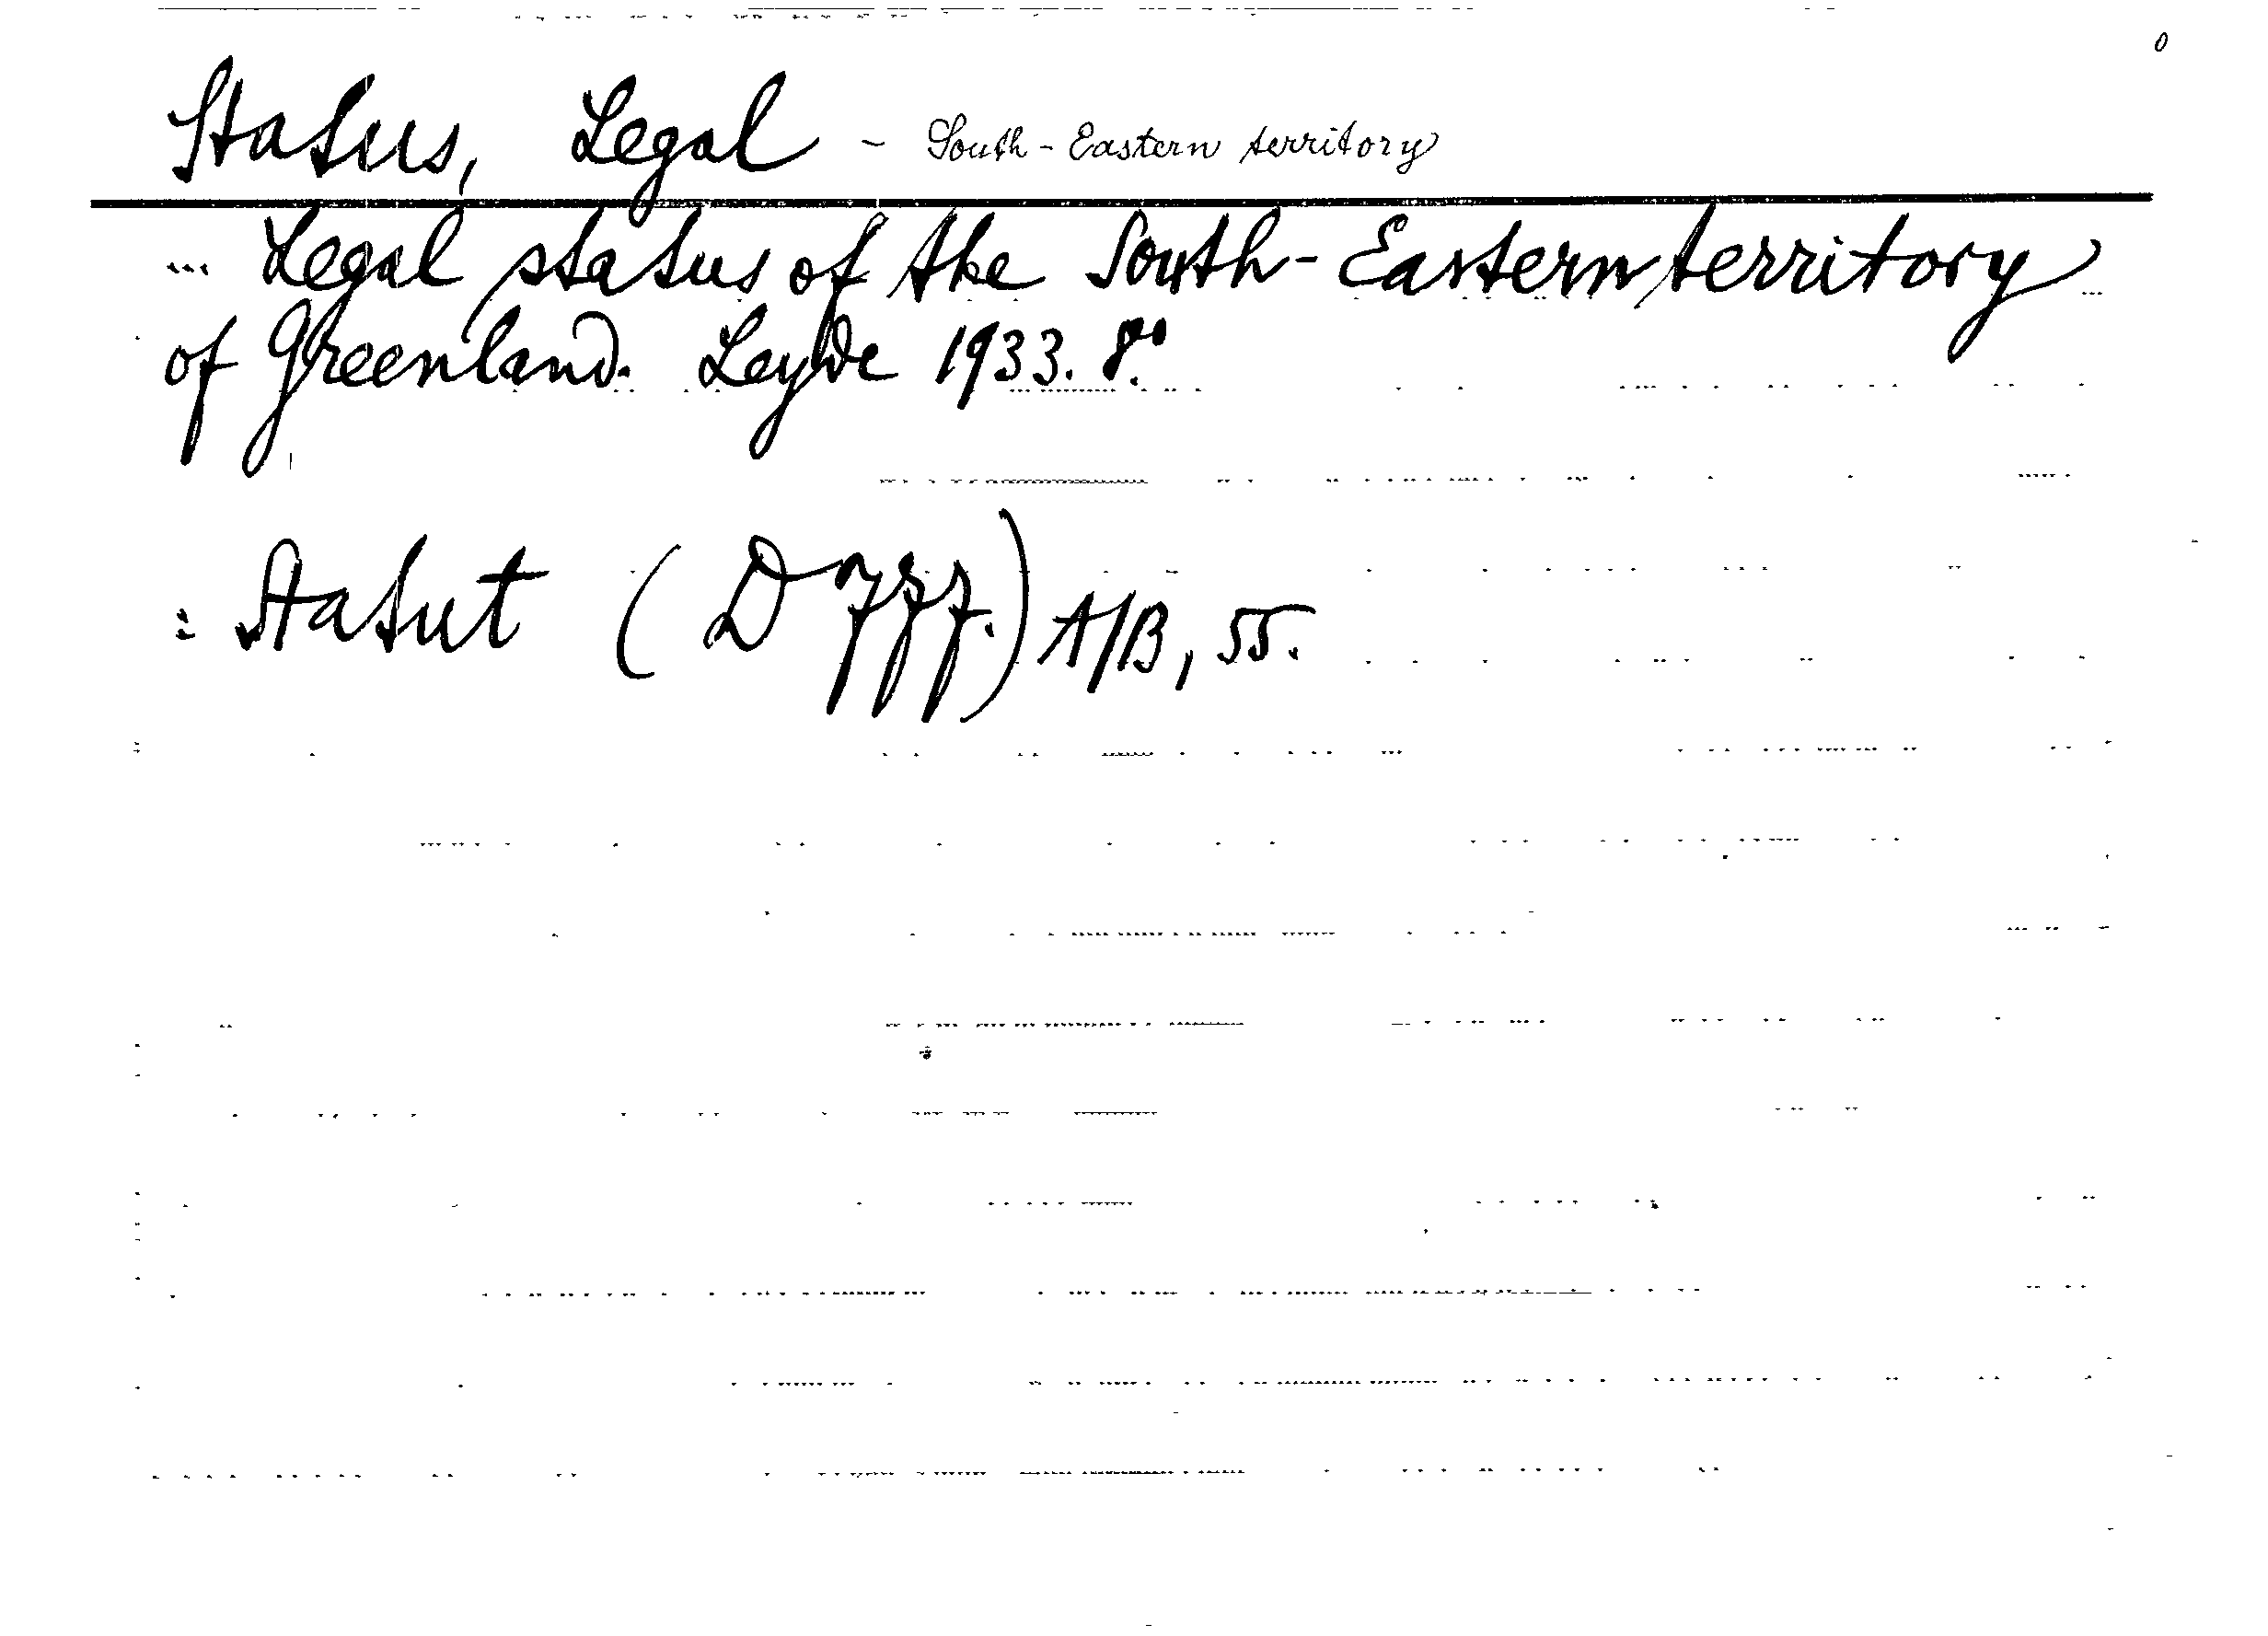 0
Status, Legal - South-Eastern territory
... Legal status of the South-Eastern territory
of Greenland. Leyde 1933. 8°.
= Statut ( A/B, 55.